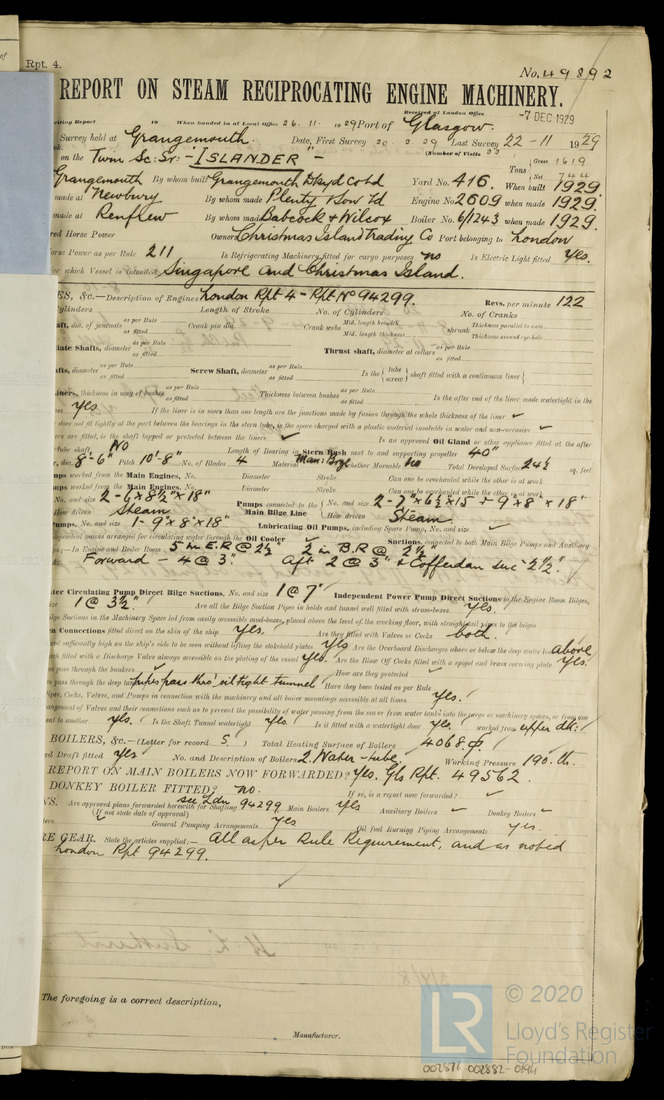 Rpt. 4.
No. 49892
REPORT ON STEAM RECIPROCATING ENGINE MACHINERY.
Received at London Office -7 DEC 1929
When handed in at Local Office 26.11.1929 Port of Glasgow.
Survey held at Grangemouth. Date, First Survey 20.2.29 Last Survey 22-11 1929
(Number of Visits
on the Twin Sc. Sr. "ISLANDER" Tons Gross 1619 Net 744
Grangemouth By whom built Grangemouth Dkyd Co Ld Yard No. 416. When built 1929.
made at Newbury By whom made Plenty & Son Ld Engine No. 2609 when made 1929.
made at Renfrew By whom made Babcock & Wilcox Boiler No. 6/1243 when made 1929.
Horse Power Owners Christmas Island Trading Co Port belonging to London
Horse Power as per Rule 211 Is Refrigerating Machinery fitted for cargo purposes no Is Electric Light fitted Yes.
for which Vessel is intended Singapore and Christmas Island.
ES, &c.—Description of Engines London Rpt 4 - Rpt No 94299. Revs. per minute 122
Cylinders Length of Stroke No. of Cylinders No. of Cranks
dia. of journals as per Rule as fitted Crank pin dia. Crank webs Mid. length breadth Mid. length thickness shrunk Thickness parallel to axis Thickness around eye-hole
iate Shafts, diameter as per Rule as fitted Thrust shaft, diameter at collars as per Rule as fitted
diameter as per Rule as fitted Screw Shaft, diameter as per Rule as fitted Is the tube screw shaft fitted with a continuous liner
thickness in way of bushes as per Rule as fitted Thickness between bushes as per Rule as fitted Is the after end of the liner made watertight in the
yes If the liner is in more than one length are the junctions made by fusion through the whole thickness of the liner ✓
does not fit tightly at the part between the bearings in the stern tube, is the space charged with a plastic material insoluble in water and non-corrosive ✓
are fitted, is the shaft lapped or protected between the liners ✓ Is an approved Oil Gland or other appliance fitted at the after
tube shaft No Length of Bearing in Stern Bush next to and supporting propeller 40"
dia. 8'-6" Pitch 10'-8" No. of Blades 4 Material Man: Brze whether Moveable no Total Developed Surface 24½ sq. feet
worked from the Main Engines, No. Diameter Stroke Can one be overhauled while the other is at work
worked from the Main Engines, No. Diameter Stroke Can one be overhauled while the other is at work
No. and size 2-6×8½"×18" Pumps connected to the Main Bilge Line No. and size 2-7×6½×15 & 9×8×18"
How driven Steam How driven Steam
Pumps, No. and size 1-9"×8"×18" Lubricating Oil Pumps, including Spare Pump, No. and size ✓
means arranged for circulating water through the Oil Cooler ✓ Suctions, connected to both Main Bilge Pumps and Auxiliary
;—In Engine and Boiler Room 5 in E.R @ 2½" 2 in B.R @ 2½"
Forward - 4 @ 3" Aft 2 @ 3" & Cofferdam suc 2½".
Circulating Pump Direct Bilge Suctions, No. and size 1 @ 7" Independent Power Pump Direct Suctions to the Engine Room Bilges,
1 @ 3½" Are all the Bilge Suction Pipes in holds and tunnel well fitted with strum-boxes. Yes.
Bilge Suctions in the Machinery Space led from easily accessible mud-boxes, placed above the level of the working floor, with straight tail pipes to the bilges
Sea Connections fitted direct on the skin of the ship Yes. Are they fitted with Valves or Cocks both.
sufficiently high on the ship's side to be seen without lifting the stokehold plates Yes Are the Overboard Discharges above or below the deep water above
fitted with a Discharge Valve always accessible on the plating of the vessel Yes. Are the Blow Off Cocks fitted with a spigot and brass covering plate Yes.
pass through the bunkers ✓ How are they protected ✓
pass through the deep tanks pipes pass thro' oiltight tunnel Have they been tested as per Rule
Pipes, Cocks, Valves, and Pumps in connection with the machinery and all boiler mountings accessible at all times Yes.
arrangement of Valves and their connections such as to prevent the possibility of water passing from the sea or from water tanks into the cargo or machinery spaces, or from one
to another Yes. Is the Shaft Tunnel watertight Yes. Is it fitted with a watertight door Yes worked from upper dk:
BOILERS, &c.—(Letter for record S.) Total Heating Surface of Boilers 4068 ф.
Draft fitted Yes No. and Description of Boilers 2 Water-tube. Working Pressure 190 lb.
REPORT ON MAIN BOILERS NOW FORWARDED? Yes. Gls Rpt. 49562.
DONKEY BOILER FITTED? no. If so, is a report now forwarded? ✓
Are approved plans forwarded herewith for Shafting see Ldn 94299 Main Boilers Yes Auxiliary Boilers ✓ Donkey Boilers ✓
(If not state date of approval)
General Pumping Arrangements Yes Oil fuel Burning Piping Arrangements Yes.
RE GEAR. State the articles supplied:— All as per Rule Requirement, and as noted
London Rpt 94299.
The foregoing is a correct description,
Manufacturer.
LR © 2020
Lloyd's Register
Foundation
002876-002882-0194